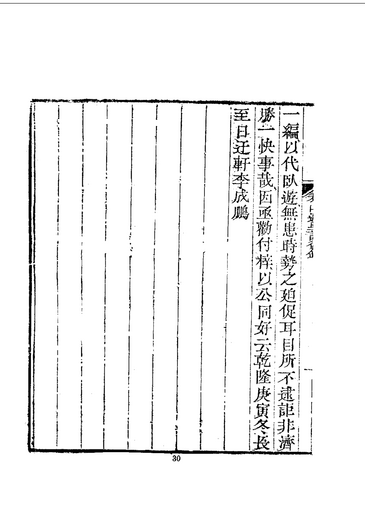 一編以代臥遊無患時勢之廹促耳目所不逮詎非濟
勝一快事哉因亟勸付梓以公同好云乾隆庚寅冬長
至日迂軒李成鵬
30